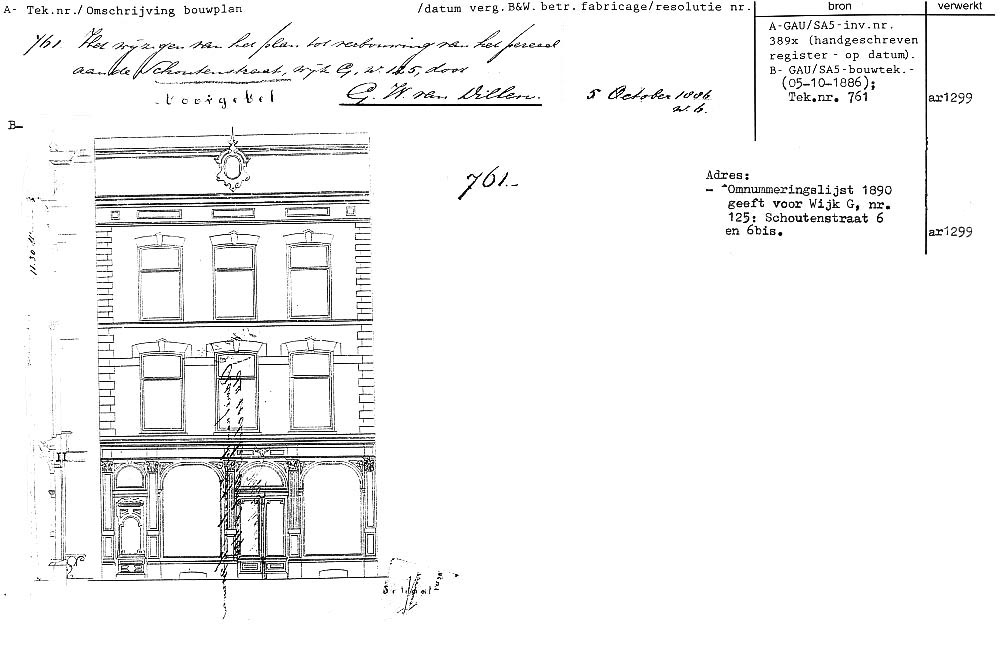 A- Tek.nr./Omschrijving bouwplan /datum verg.B&W. betr. fabricage/resolutie nr. bron verwerkt
761 Het wijzigen van het plan tot verbouwing van het perceel
aan de Schoutenstraat, wijk G, nr. 125, door
G. W. van Dillen. 5 October 1886
voorgevel
A-GAU/SA5-inv.nr.
389x (handgeschreven
register - op datum).
B- GAU/SA5-bouwtek.-
(05-10-1886);
Tek.nr. 761 ar1299
B-
761.-
Adres:
- Omnummeringslijst 1890
geeft voor Wijk G, nr.
125: Schoutenstraat 6
en 6bis. ar1299
11.30